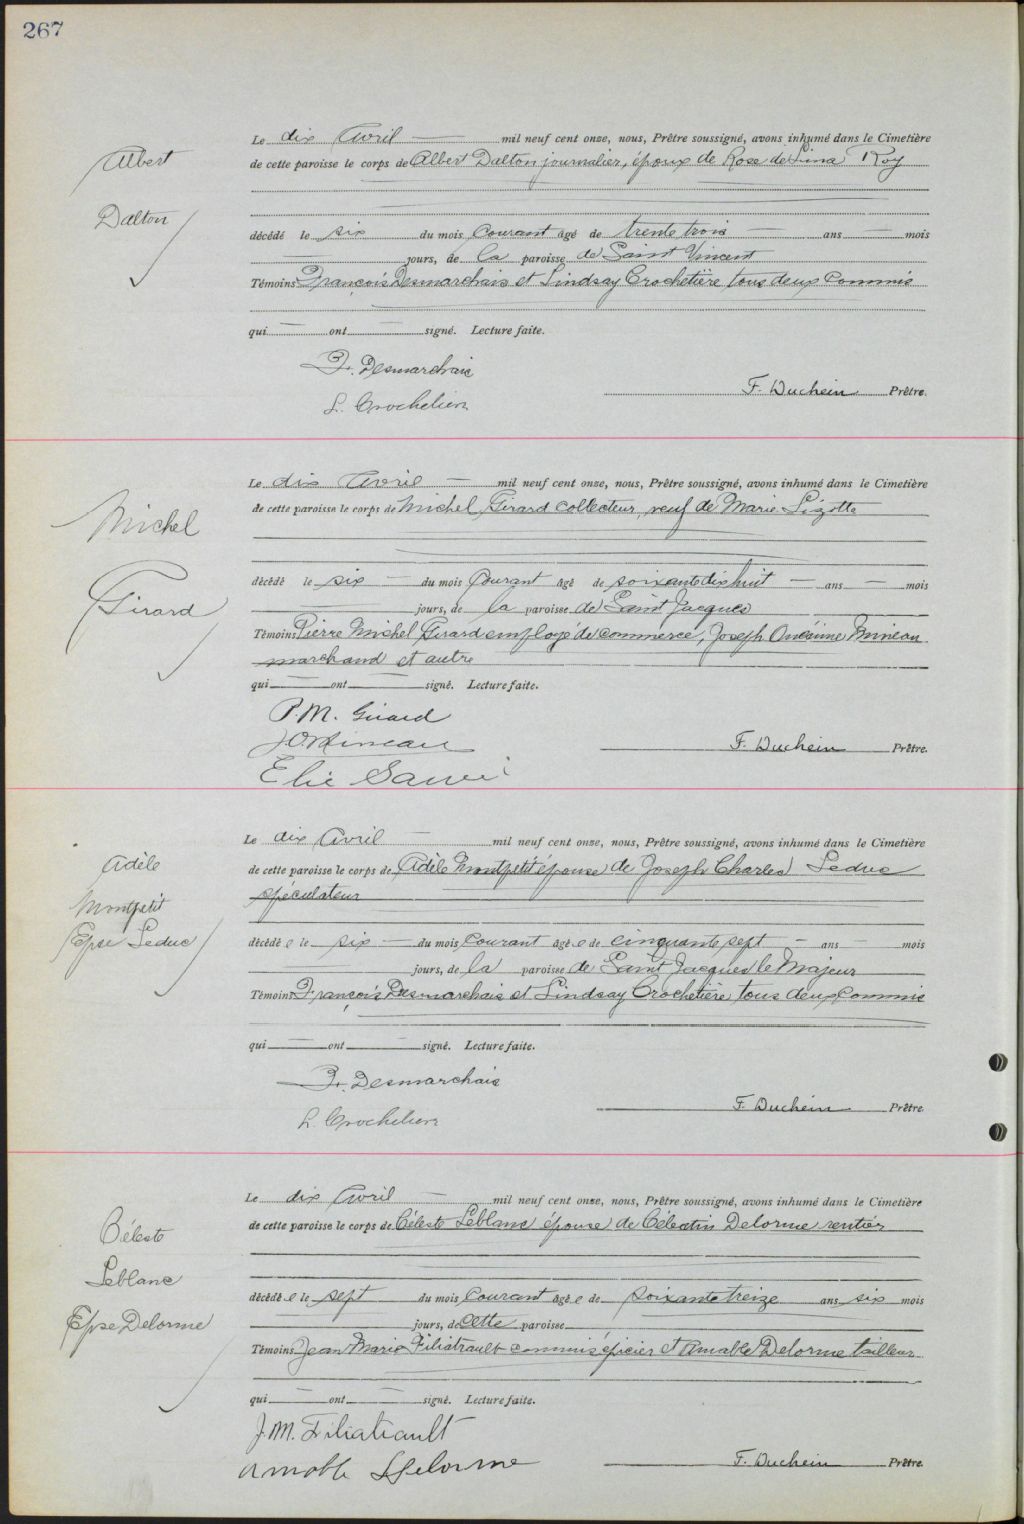 267
Albert
Dalton
Le dix Avril mil neuf cent onze, nous, Prêtre soussigné, avons inhumé dans le Cimetière
de cette paroisse le corps de Albert Dalton journalier, époux de Rose de Lima Roy
décédé le six du mois Courant âgé de trente trois ans mois
jours, de la paroisse de Saint Vincent
Témoins François Desmarchais et Lindsay Crochetière, tous deux Commis
qui ont signé. Lecture faite.
F. Desmarchais
L. Crochetière
F. Duchein Prêtre.
Michel
Girard
Le dix Avril mil neuf cent onze, nous, Prêtre soussigné, avons inhumé dans le Cimetière
de cette paroisse le corps de Michel Girard Collecteur, veuf de Marie Lizotte
décédé le six du mois Courant âgé de soixante dix huit ans mois
jours, de la paroisse de Saint Jacques
Témoins Pierre Michel Girard employé de commerce, Joseph Onésime Mineau
marchand et autre
qui ont signé. Lecture faite.
P. M. Girard
J O Mineau
Elie
F. Duchein Prêtre.
Adèle
Montpetit
Epse Leduc
Le dix Avril mil neuf cent onze, nous, Prêtre soussigné, avons inhumé dans le Cimetière
de cette paroisse le corps de Adèle Montpetit épouse de Joseph Charles Leduc
spéculateur
décédé e le six du mois Courant âgé e de cinquante sept ans mois
jours, de la paroisse de Saint Jacques le Majeur
Témoins François Desmarchais et Lindsay Crochetière, tous deux Commis
qui ont signé. Lecture faite.
F. Desmarchais
L. Crochetière
F. Duchein Prêtre.
Céleste
Leblanc
Epse Delorme
Le dix Avril mil neuf cent onze, nous, Prêtre soussigné, avons inhumé dans le Cimetière
de cette paroisse le corps de Céleste Leblanc épouse de Célestin Delorme rentier
décédé e le sept du mois Courant âgé e de soixante treize ans six mois
jours, de cette paroisse
Témoins Jean Marie Filiatrault commis épicier et Amable Delorme tailleur
qui ont signé. Lecture faite.
J. M. Filiatrault
Amable Delorme
F. Duchein Prêtre.